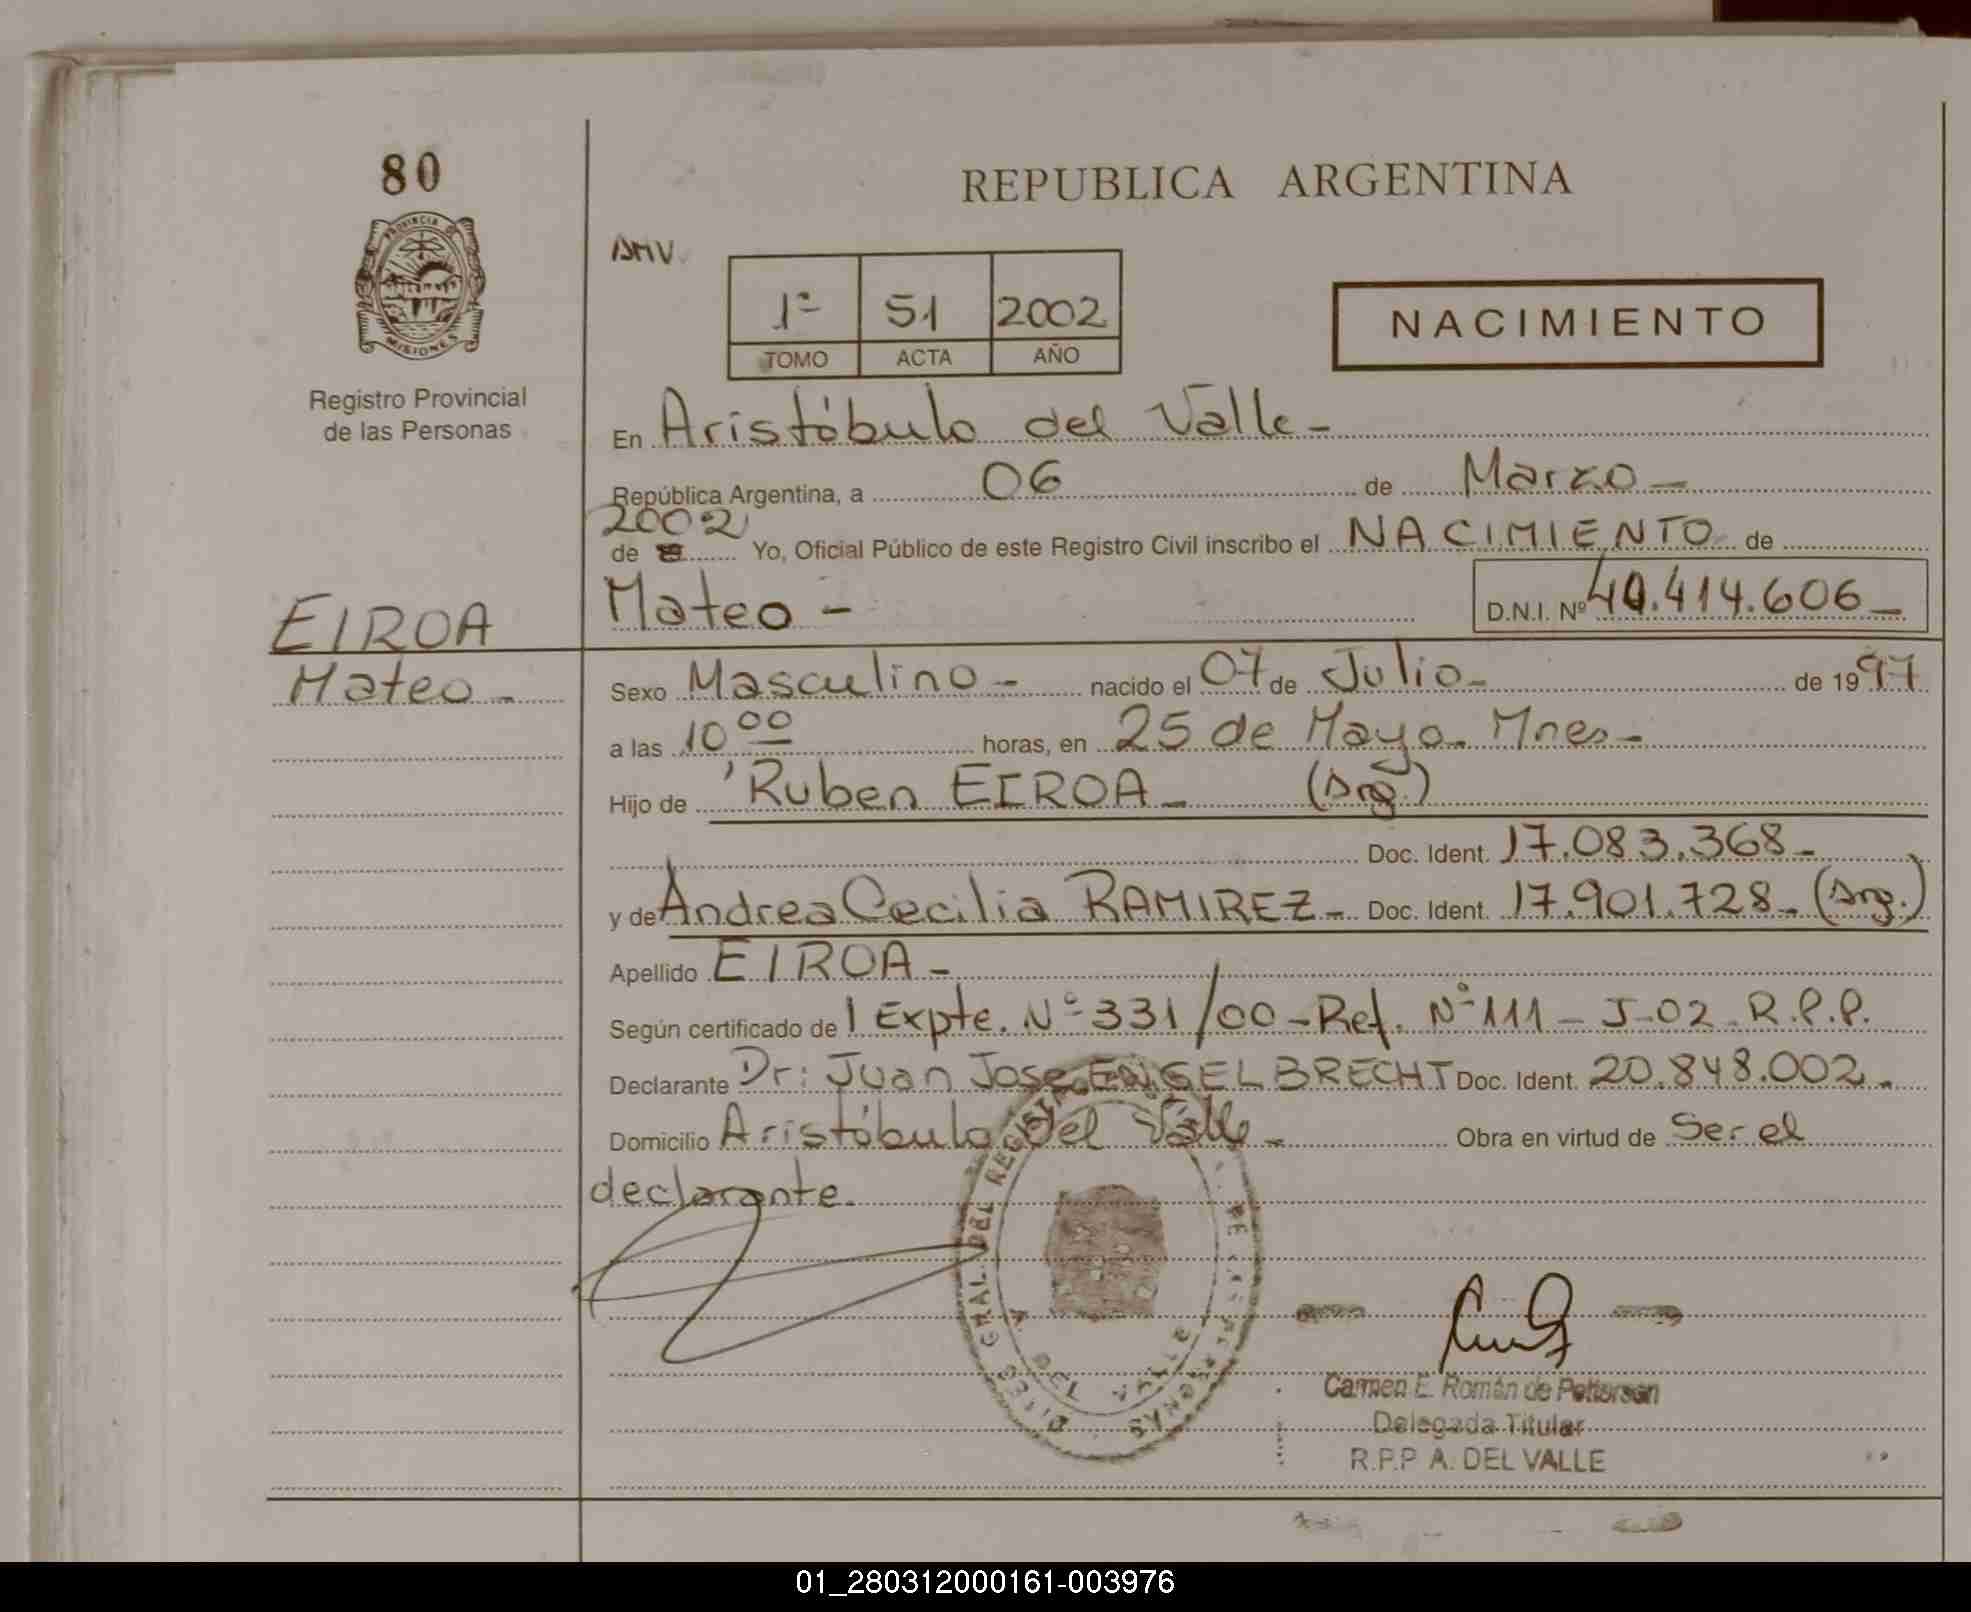 80
REPUBLICA ARGENTINA
PROVINCIA DE
MISIONES
Registro Provincial
de las Personas
AMV.
1º 51 2002
TOMO ACTA AÑO
NACIMIENTO
En Aristóbulo del Valle -
República Argentina, a 06 de Marzo -
2002
de Yo, Oficial Público de este Registro Civil inscribo el NACIMIENTO de
EIROA
Mateo - D.N.I. Nº 40.414.606 -
Mateo -
Sexo Masculino - nacido el 07 de Julio - de 1997
a las 10 00 horas, en 25 de Mayo - Mnes -
Hijo de Ruben EIROA - (Arg.)
Doc. Ident. 17.083.368 -
y de Andrea Cecilia RAMIREZ - Doc. Ident. 17.901.728 - (Arg.)
Apellido EIROA -
Según certificado de 1 Expte. Nº 331/00 - Ref. Nº 111 - J-02 - R.P.P.
Declarante Dr: Juan Jose ENGELBRECHT Doc. Ident. 20.848.002 -
Domicilio Aristóbulo del Valle - Obra en virtud de Ser el
declarante.
GRAL. DEL REGISTRO DE LAS PERSONAS
A. DEL VALLE
Carmen E. Román de Petterson
Delegada Titular
R.P.P A. DEL VALLE
01_280312000161-003976